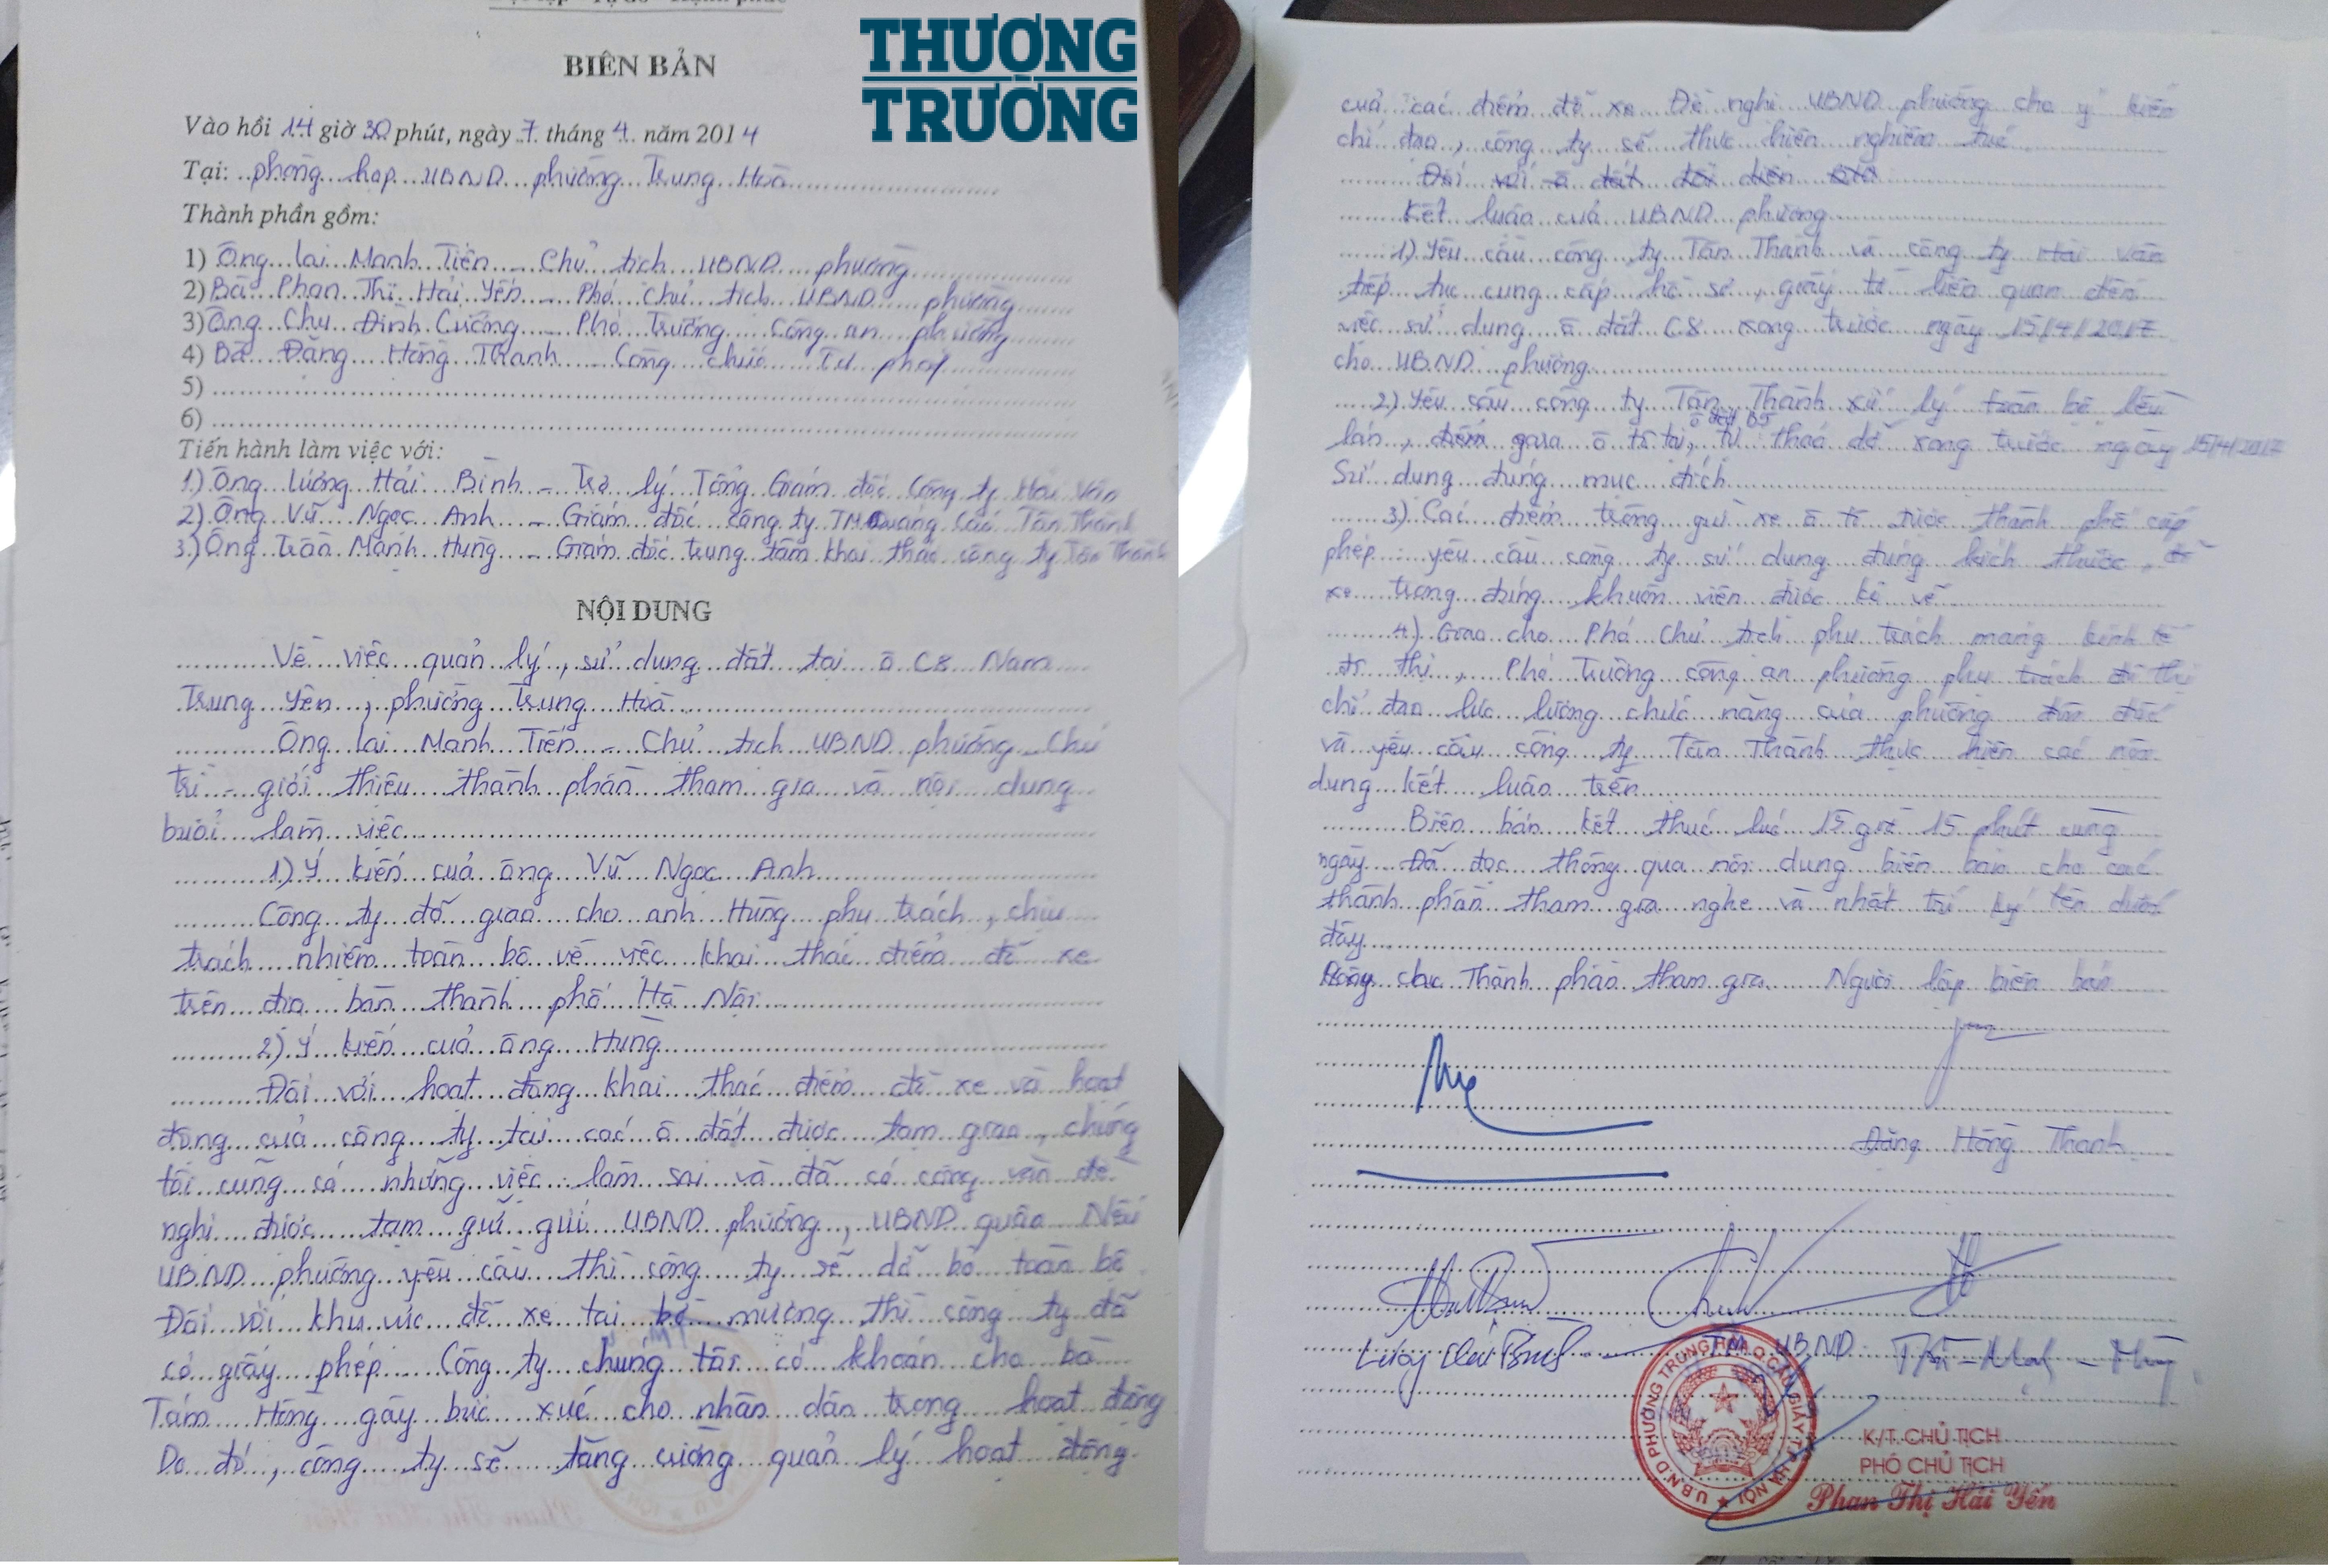 BIÊN BẢN
THƯƠNG
TRƯỜNG
Vào hồi 14 giờ 30 phút, ngày 7 tháng 4 năm 2014
Tại: phòng họp UBND phường Trung Hoà
Thành phần gồm:
1) Ông Lại Mạnh Tiến - Chủ tịch UBND phường
2) Bà Phan Thị Hải Yến - Phó Chủ tịch UBND phường
3) Ông Chu Đình Cường - Phó Trưởng Công an phường
4) Bà Đặng Hồng Thanh - Công chức Tư pháp
5)
6)
Tiến hành làm việc với:
1.) Ông Lương Hải Bình - Trợ lý Tổng Giám đốc Công ty Hải Vân
2) Ông Vũ Ngọc Anh - Giám đốc công ty TM Quảng Cáo Tân Thành
3.) Ông Trần Mạnh Hùng - Giám đốc trung tâm khai thác công ty Tân Thành
NỘI DUNG
Về việc quản lý, sử dụng đất tại ô C8 Nam
Trung Yên, phường Trung Hoà
Ông Lại Mạnh Tiến - Chủ tịch UBND phường Chủ
trì - giới thiệu thành phần tham gia và nội dung
buổi làm việc
1) Ý kiến của ông Vũ Ngọc Anh
Công ty đã giao cho anh Hùng phụ trách, chịu
trách nhiệm toàn bộ về việc khai thác điểm đỗ xe
trên địa bàn thành phố Hà Nội
2) Ý kiến của ông Hùng
Đối với hoạt động khai thác điểm đỗ xe và hoạt
động của công ty tại các ô đất được tạm giao, chúng
tôi cũng có những việc làm sai và đã có công văn đề
nghị được tạm gửi UBND phường, UBND quận Nếu
UBND phường yêu cầu thì công ty sẽ dỡ bỏ toàn bộ
Đối với khu vực đỗ xe tại bờ mương thì công ty đã
có giấy phép. Công ty chúng tôi có khoán cho bà
Tám Hồng gây bức xúc cho nhân dân trong hoạt động
Do đó, công ty sẽ tăng cường quản lý hoạt động
của các điểm đỗ xe Đề nghị UBND phường cho ý kiến
chỉ đạo, công ty sẽ thực hiện nghiêm túc
Đối với ô đất
Kết luận của UBND phường
1) Yêu cầu công ty Tân Thành và công ty Hải Vân
tiếp tục cung cấp hồ sơ, giấy tờ liên quan đến
việc sử dụng ô đất C8 xong trước ngày 15/4/2017
cho UBND phường
2) Yêu cầu công ty Tân Thành xử lý toàn bộ lều
lán, gara ô tô tại ô đất tự tháo dỡ xong trước ngày 15/4/2017
Sử dụng đúng mục đích
3) Các điểm trông giữ xe ô tô được thành phố cấp
phép: yêu cầu công ty sử dụng đúng kích thước, đỗ
xe trong đúng khuôn viên được kẻ vẽ
4) Giao cho Phó Chủ tịch phụ trách mảng kinh tế
đô thị, Phó Trưởng công an phường phụ trách đô thị
chỉ đạo lực lượng chức năng của phường đôn đốc
và yêu cầu công ty Tân Thành thực hiện các nội
dung kết luận trên
Biên bản kết thúc lúc 15 giờ 15 phút cùng
ngày. Đã đọc thông qua nội dung biên bản cho các
thành phần tham gia nghe và nhất trí ký tên dưới
đây
Thành phần tham gia Người lập biên bản
Đặng Hồng Thanh
Lương Hải Bình TM UBND Trần Mạnh Hùng
U.B.N.D PHƯỜNG TRUNG HOÀ Q.CẦU GIẤY T.P HÀ NỘI
K/T. CHỦ TỊCH
PHÓ CHỦ TỊCH
Phan Thị Hải Yến